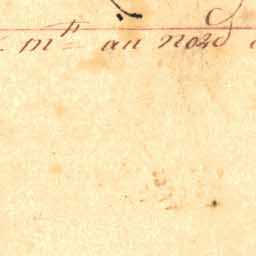 mt au nord